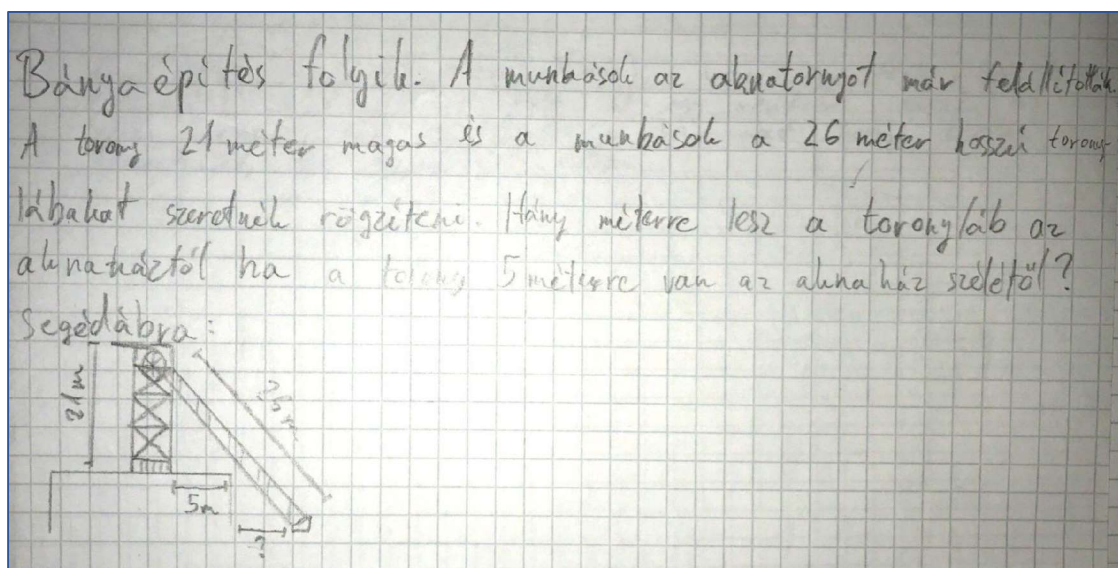 Bányaépítés folyik. A munkások az aknatornyot már felállították.
A torony 21 méter magas és a munkások a 26 méter hosszú torony
lábakat szeretnék rögzíteni. Hány méterre lesz a toronyláb az
aknaháztól ha a torony 5 méterre van az aknaház szélétől?
Segédábra:
21m
26m
5m
?